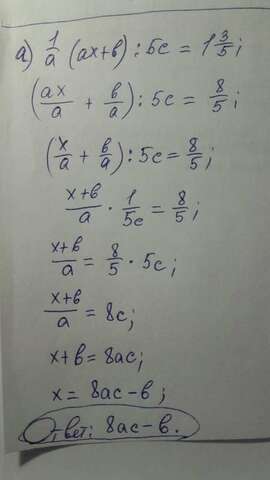 а) 1/a (ax+b) : 5c = 1 3/5;
(ax/a + b/a) : 5c = 8/5;
(x/a + b/a) : 5c = 8/5;
x+b/a · 1/5c = 8/5;
x+b/a = 8/5 · 5c;
x+b/a = 8c;
x+b = 8ac;
x = 8ac-b;
Ответ: 8ac-b.